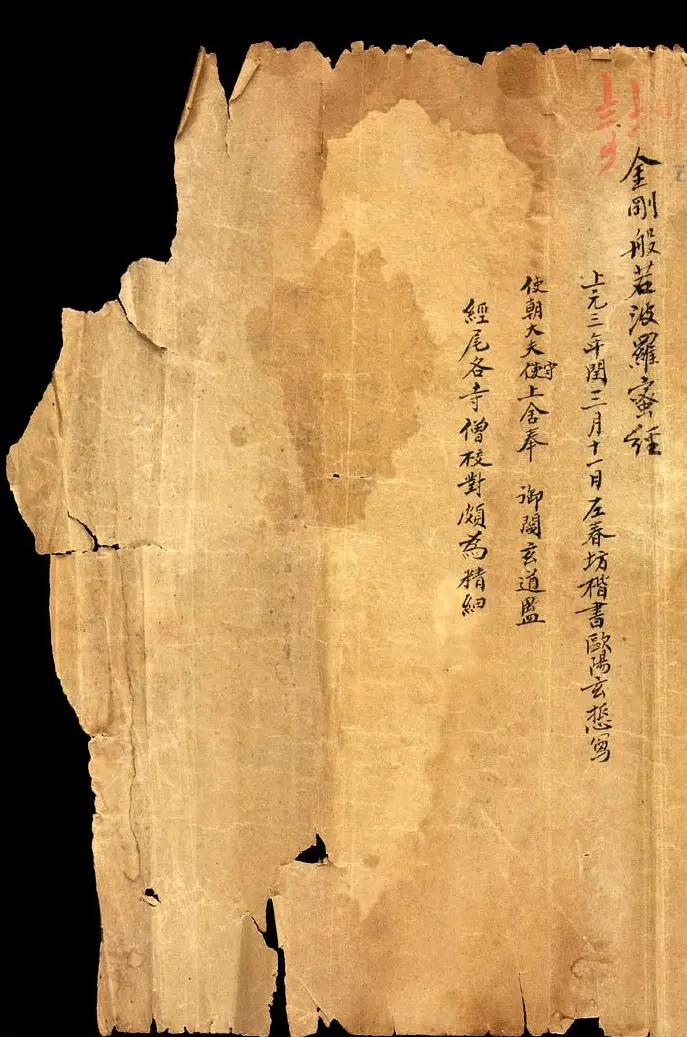 金剛般若波羅蜜經
上元三年閏三月十一日左春坊楷書歐陽玄悊寫
使朝大夫守使上舍奉 御閻玄道監
經尾各寺僧校對頗為精細